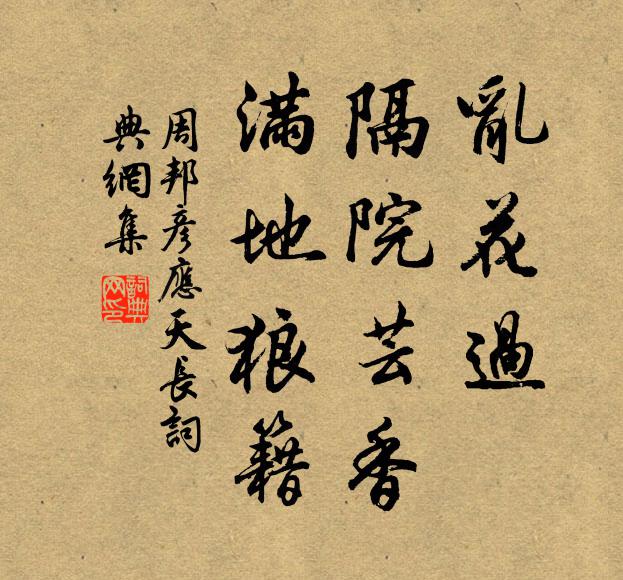 亂花過
隔院芸香
滿地狼籍
周邦彥應天長詞
典網集
詞典
网印